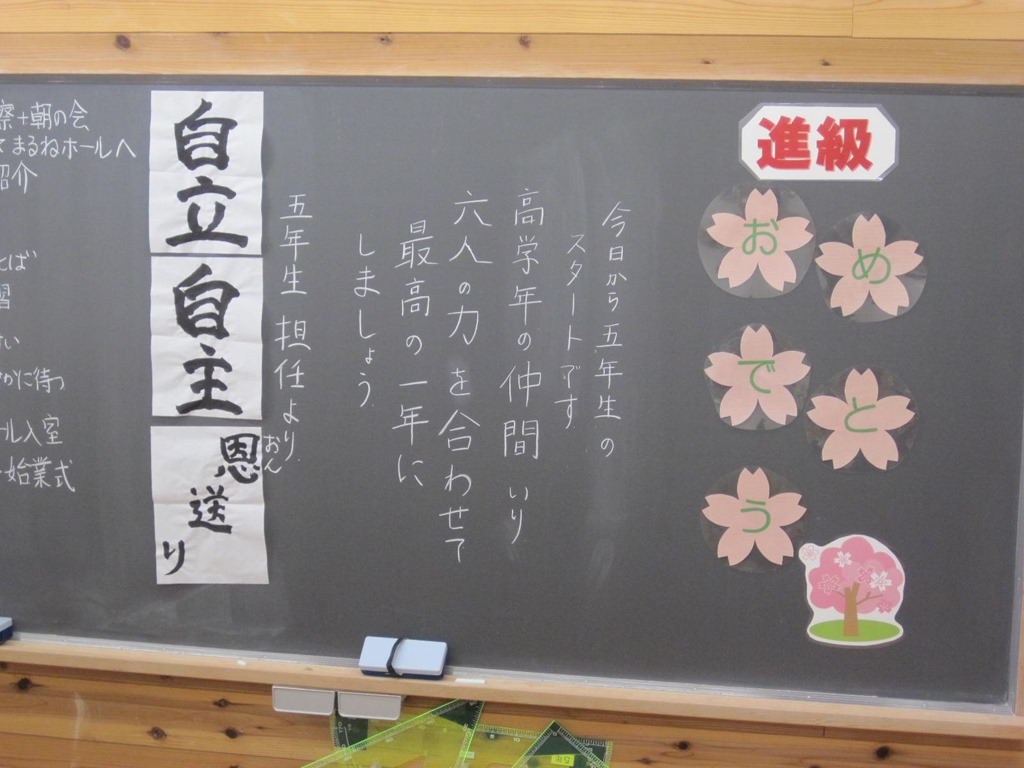 進級
おめでとう
今日から五年生の
スタートです
高学年の仲間いり
六人の力を合わせて
最高の一年に
しましょう
五年生担任より
自立
自主
恩送り
おん
朝の会
まるねホールへ
紹介
とば
習
かに待つ
ール入室
始業式